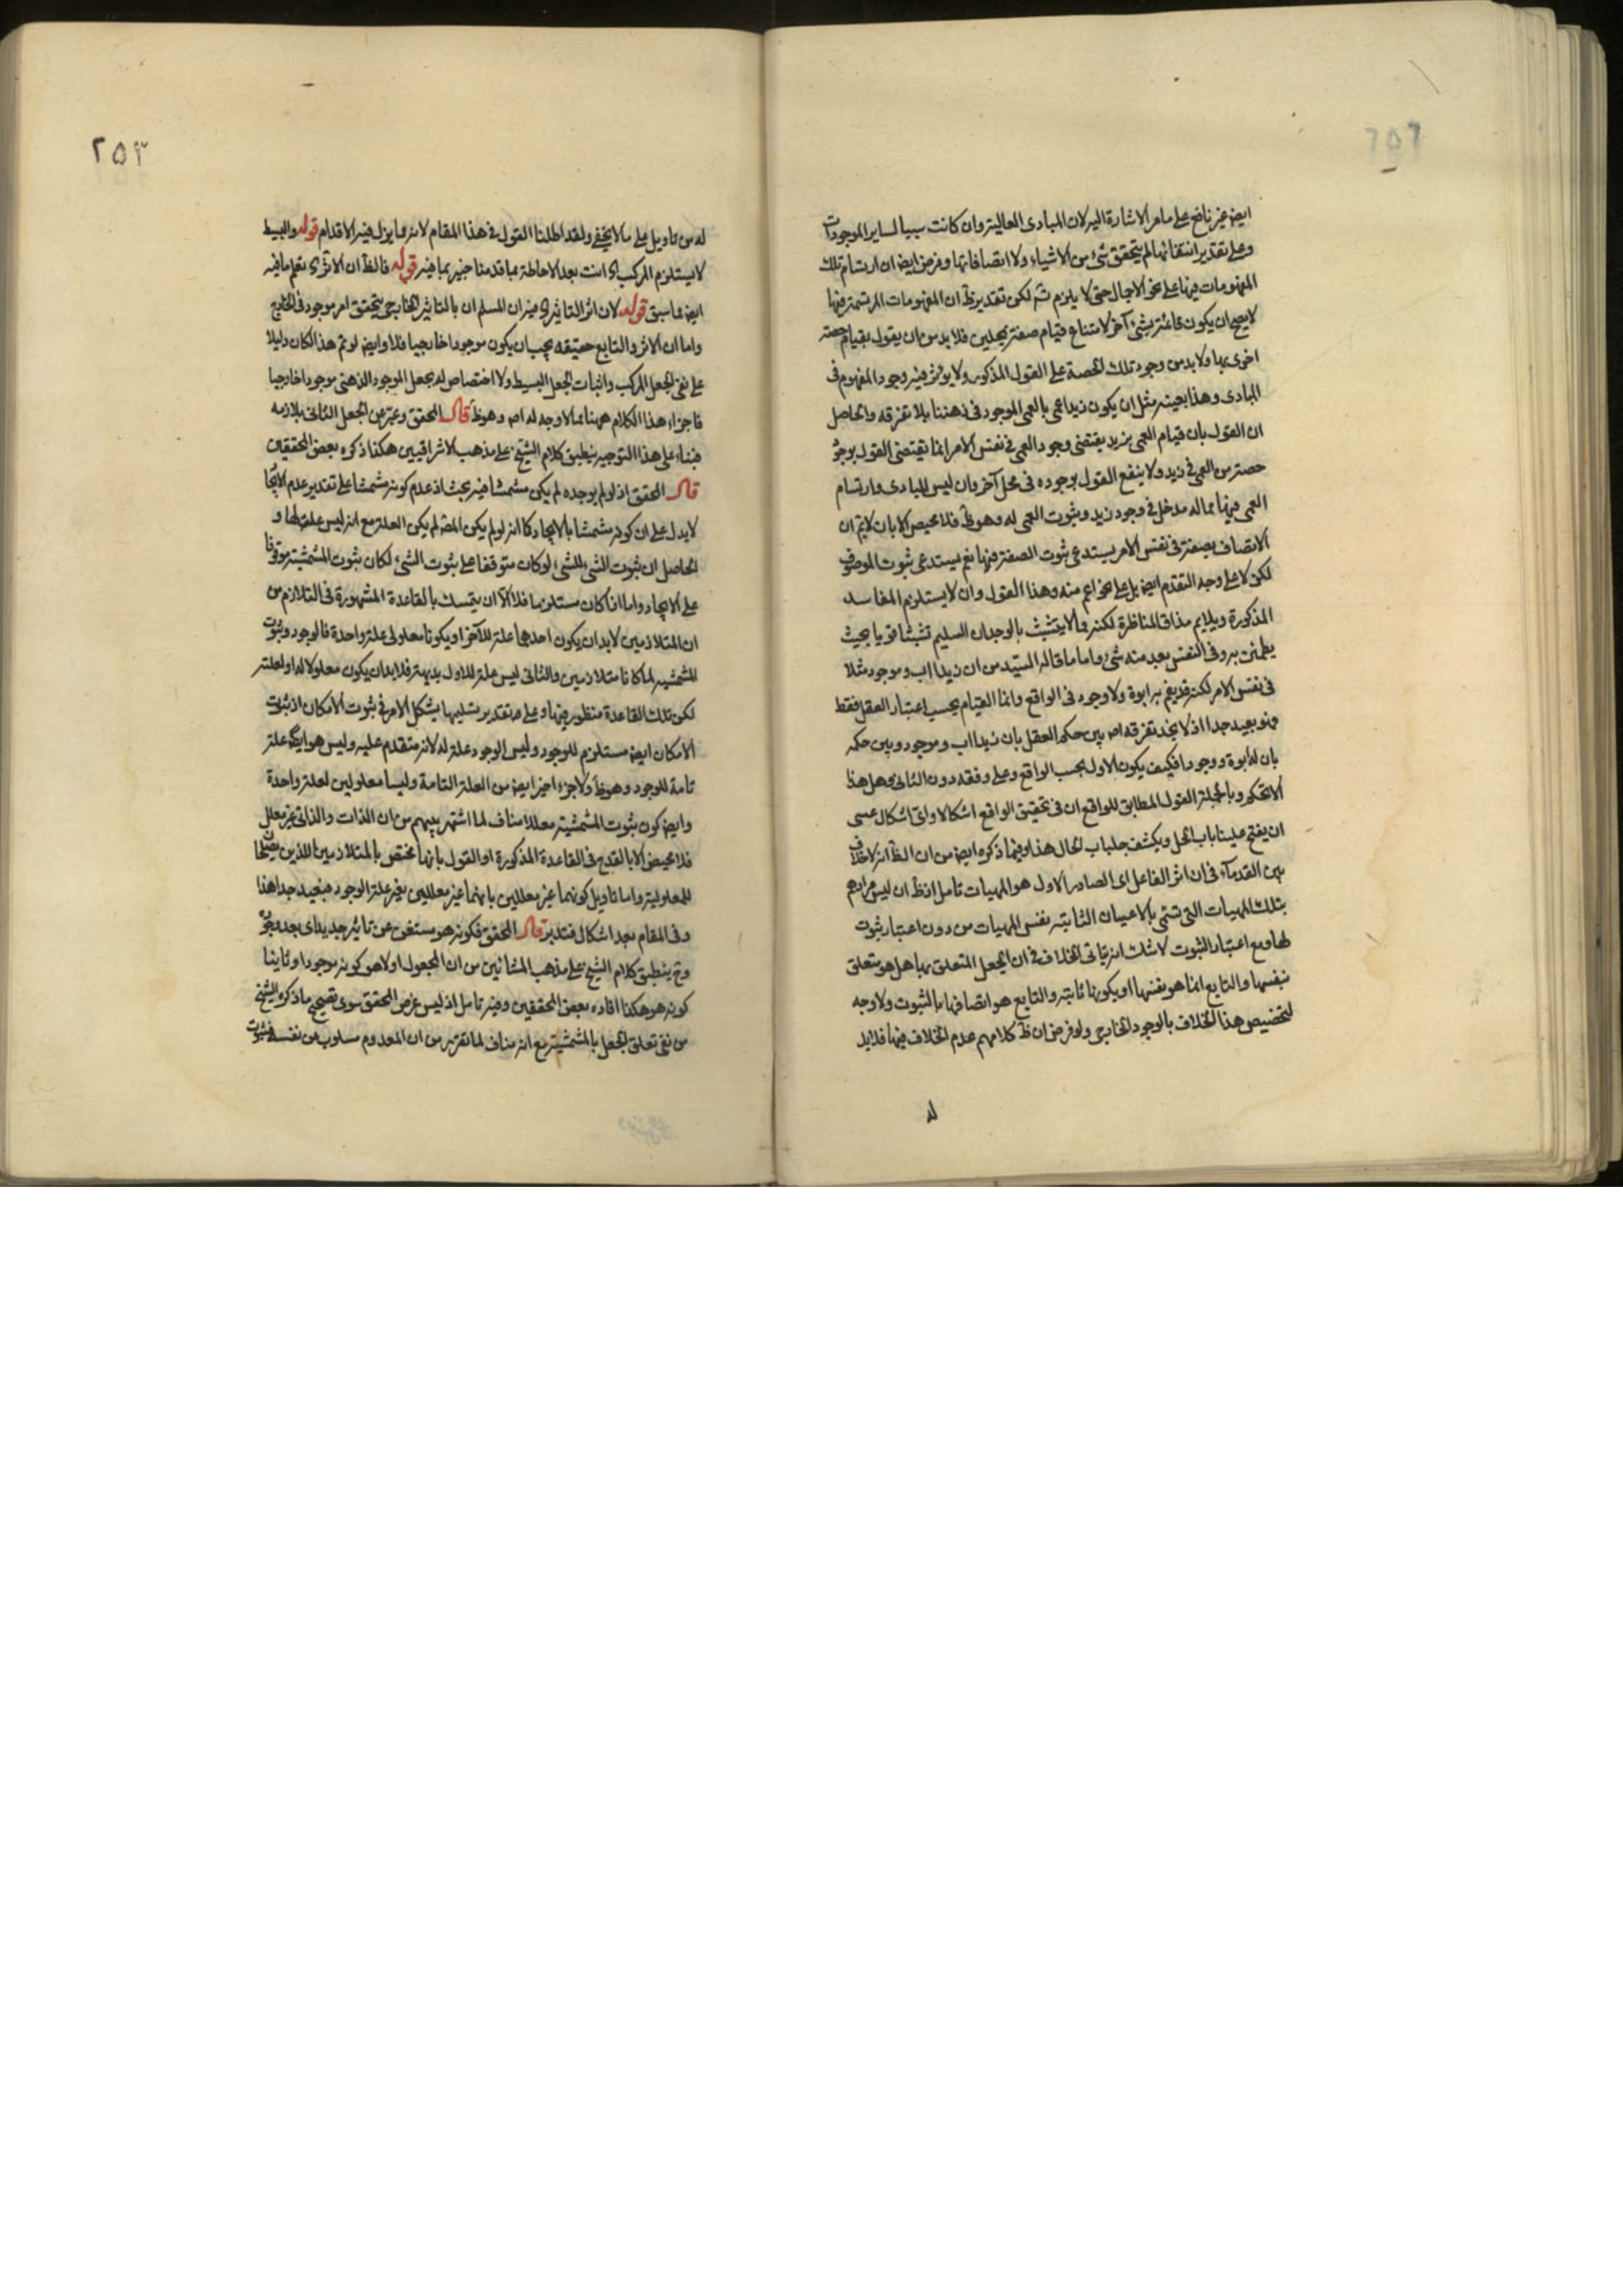 ٢٥٢
ايض غير نافع على ما مر الاشارة اليه لان المبادى العالية وان كانت سببا لساير الموجودات
وعلى تقدير انتفائها لم يتحقق شئ من الاشياء ولا اتصافاتها وفرض ايض ان ارتسام تلك
المفهومات فيها على نحو الاجمال حتى لا يلزم شم لكن تقديره ظ ان المفهومات المرتسمة فيها
لا يصح ان يكون قائمة بشئ آخر لامتناع قيام صفة بمحلين فلا بد من ان يقول بقيام حصة
اخرى بها ولا بد من وجود تلك الحصة على القول المذكور ولا يؤثر فيه وجود المفهوم فى
المبادى وهذا بعينه مثل ان يكون زيد اعمى بالعمى الموجود فى ذهننا بلا تفرقه والحاصل
ان القول بان قيام العمى بزيد يقتضى وجود العمى فى نفس الامر انما يقتضى القول بوجود
حصة من العمى فى زيد ولا ينفع القول بوجوده فى محل آخر وان ليس للمبادى وارتسام
العمى فيها مما له مدخل فى وجود زيد وثبوت العمى له وهو ظ فلا محيص الا بان لا يتم ان
الاتصاف بصفة فى نفس الامر يستدعى ثبوت الصفة فيها نعم يستدعى ثبوت الموصوف
لكن لا على وجه التقدم ايض بل على نحو اعم منه وهذا القول وان لا يستلزم المفاسد
المذكورة ويلايم مذاق المناظرة لكنه مما لا يتشبث بالوجدان السليم تشبثا قويا بحيث
يطمئن به وفى النفس بعد منه شئ واما ما قاله السيد من ان زيدا اب وموجود مثلا
فى نفس الامر لكن قد يقم به ابوة ولا وجود فى الواقع وانما القيام بحسب اعتبار العقل فقط
فهو بعيد جدا اذ لا نجد تفرقه اص بين حكم العقل بان زيدا اب وموجود وبين حكمه
بان له ابوة ووجودا فكيف يكون الاول بحسب الواقع وعلى وفقه دون الثانى وهل هذا
الا تحكم وبالجملة القول المطابق للواقع ان فى تحقيق الواقع اشكالا واى اشكال عسى
ان يفتح علينا باب الحل ويكشف جلباب الحال هذا وفيما ذكره ايض من ان الظ انه لا خلاف
بين القدمآء فى ان اثر الفاعل اى الصادر الاول هو المهيات تامل اذ ظ ان ليس مرادهم
بتلك المهيات التى تسمى بالاعيان الثابتة نفس المهيات من دون اعتبار ثبوت
لها ومع اعتبار الثبوت لا شك انه يتاتى الخلاف فى ان الجعل المتعلق بها هل هو متعلق
بنفسها والتابع انما هو نفسها او بكونها ثابته والتابع هو اتصافها بالثبوت ولا وجه
لتخصيص هذا الخلاف بالوجود الخارجى ولو فرض ان ظ كلامهم عدم الخلاف فيها فلا بد
له
٢٥٣
له من تاويل على ما لا يخفى ولقد اطلنا القول فى هذا المقام لانه مما يزل فيه الاقدام قوله والبسيط
لا يستلزم المركب اى انت بعد الاحاطة بما قدمنا خبير بما فيه قوله فالظ ان الاثر اى تعلم ما فيه
ايض مما سبق قوله لان اثر التاثير اى فيه ان المسلم ان بالتاثير الخارجى يتحقق امر موجود فى الخارج
واما ان الاثر والتابع حقيقه يجب ان يكون موجودا خارجيا فلا وايض لو تم هذا لكان دليلا
على نفى الجعل المركب واثبات الجعل البسيط ولا اختصاص له بجعل الموجود الذهنى موجودا خارجيا
فاجزاء هذا الكلام ههنا مما لا وجه له اص وهو ظ قال المحقق وعبر عن الجعل الثانى بلازمه
فبناء على هذا التوجيه ينطبق كلام الشيخ على مذهب الاشراقيين هكذا ذكره بعض المحققين
قال المحقق اذ لو لم يوجده لم يكن مشمشا فيه بحث اذ عدم كونه مشمشا على تقدير عدم الايجاد
لا يدل على ان كونه مشمشا بالايجاد كما انه لو لم يكن المعلول لم يكن العلة مع انه ليس علة لها و
الحاصل ان ثبوت الشئ للشئ لو كان متوقفا على ثبوت الشئ لكان ثبوت المشمشية موقوفا
على الايجاد واما اذا كان مستلزما فلا الا ان يتمسك بالقاعدة المشهورة فى التلازم من
ان المتلازمين لا بد ان يكون احدهما علة للآخر او يكونا معلولى علة واحدة فالوجود وثبوت
المشمشيه لما كانا متلازمين والثانى ليس علة للاول بديهة فلا بد ان يكون معلولا له او لعلته
لكن تلك القاعدة منظور فيها وعلى تقدير تسليمها يشكل الامر فى ثبوت الامكان اذ ثبوت
الامكان ايض مستلزم للوجود وليس الوجود علة له لانه متقدم عليه وليس هو ايض علة
تامة للوجود وهو ظ ولا جزءا اخيرا ايض من العلة التامة وليسا معلولين لعلة واحدة
وايض كون ثبوت المشمشية معللا مناف لما اشتهر بينهم من ان الذات والذاتى غير معلل
فلا محيص الا بالقدح فى القاعدة المذكورة او القول بانها مختص بالمتلازمين اللذين يصلحا
للمعلولية واما تاويل كونهما غير معللين بانهما غير معللين بغير علة الوجود فبعيد جدا هذا
وفى المقام بعد اشكال فتدبر قال المحقق فكونه هو مستغن عن تاثير جديد اى بعد وجوده
وح ينطبق كلام الشيخ على مذهب المشائين من ان المجعول اولا هو كونه موجودا وثانيا
كونه هو هكذا افاده بعض المحققين وفيه تامل اذ ليس غرض المحقق سوى تصحيح ما ذكره الشيخ
من نفى تعلق الجعل بالمشمشية مع انه مناف لما تقرر من ان المعدوم مسلوب عن نفسه فثبوت